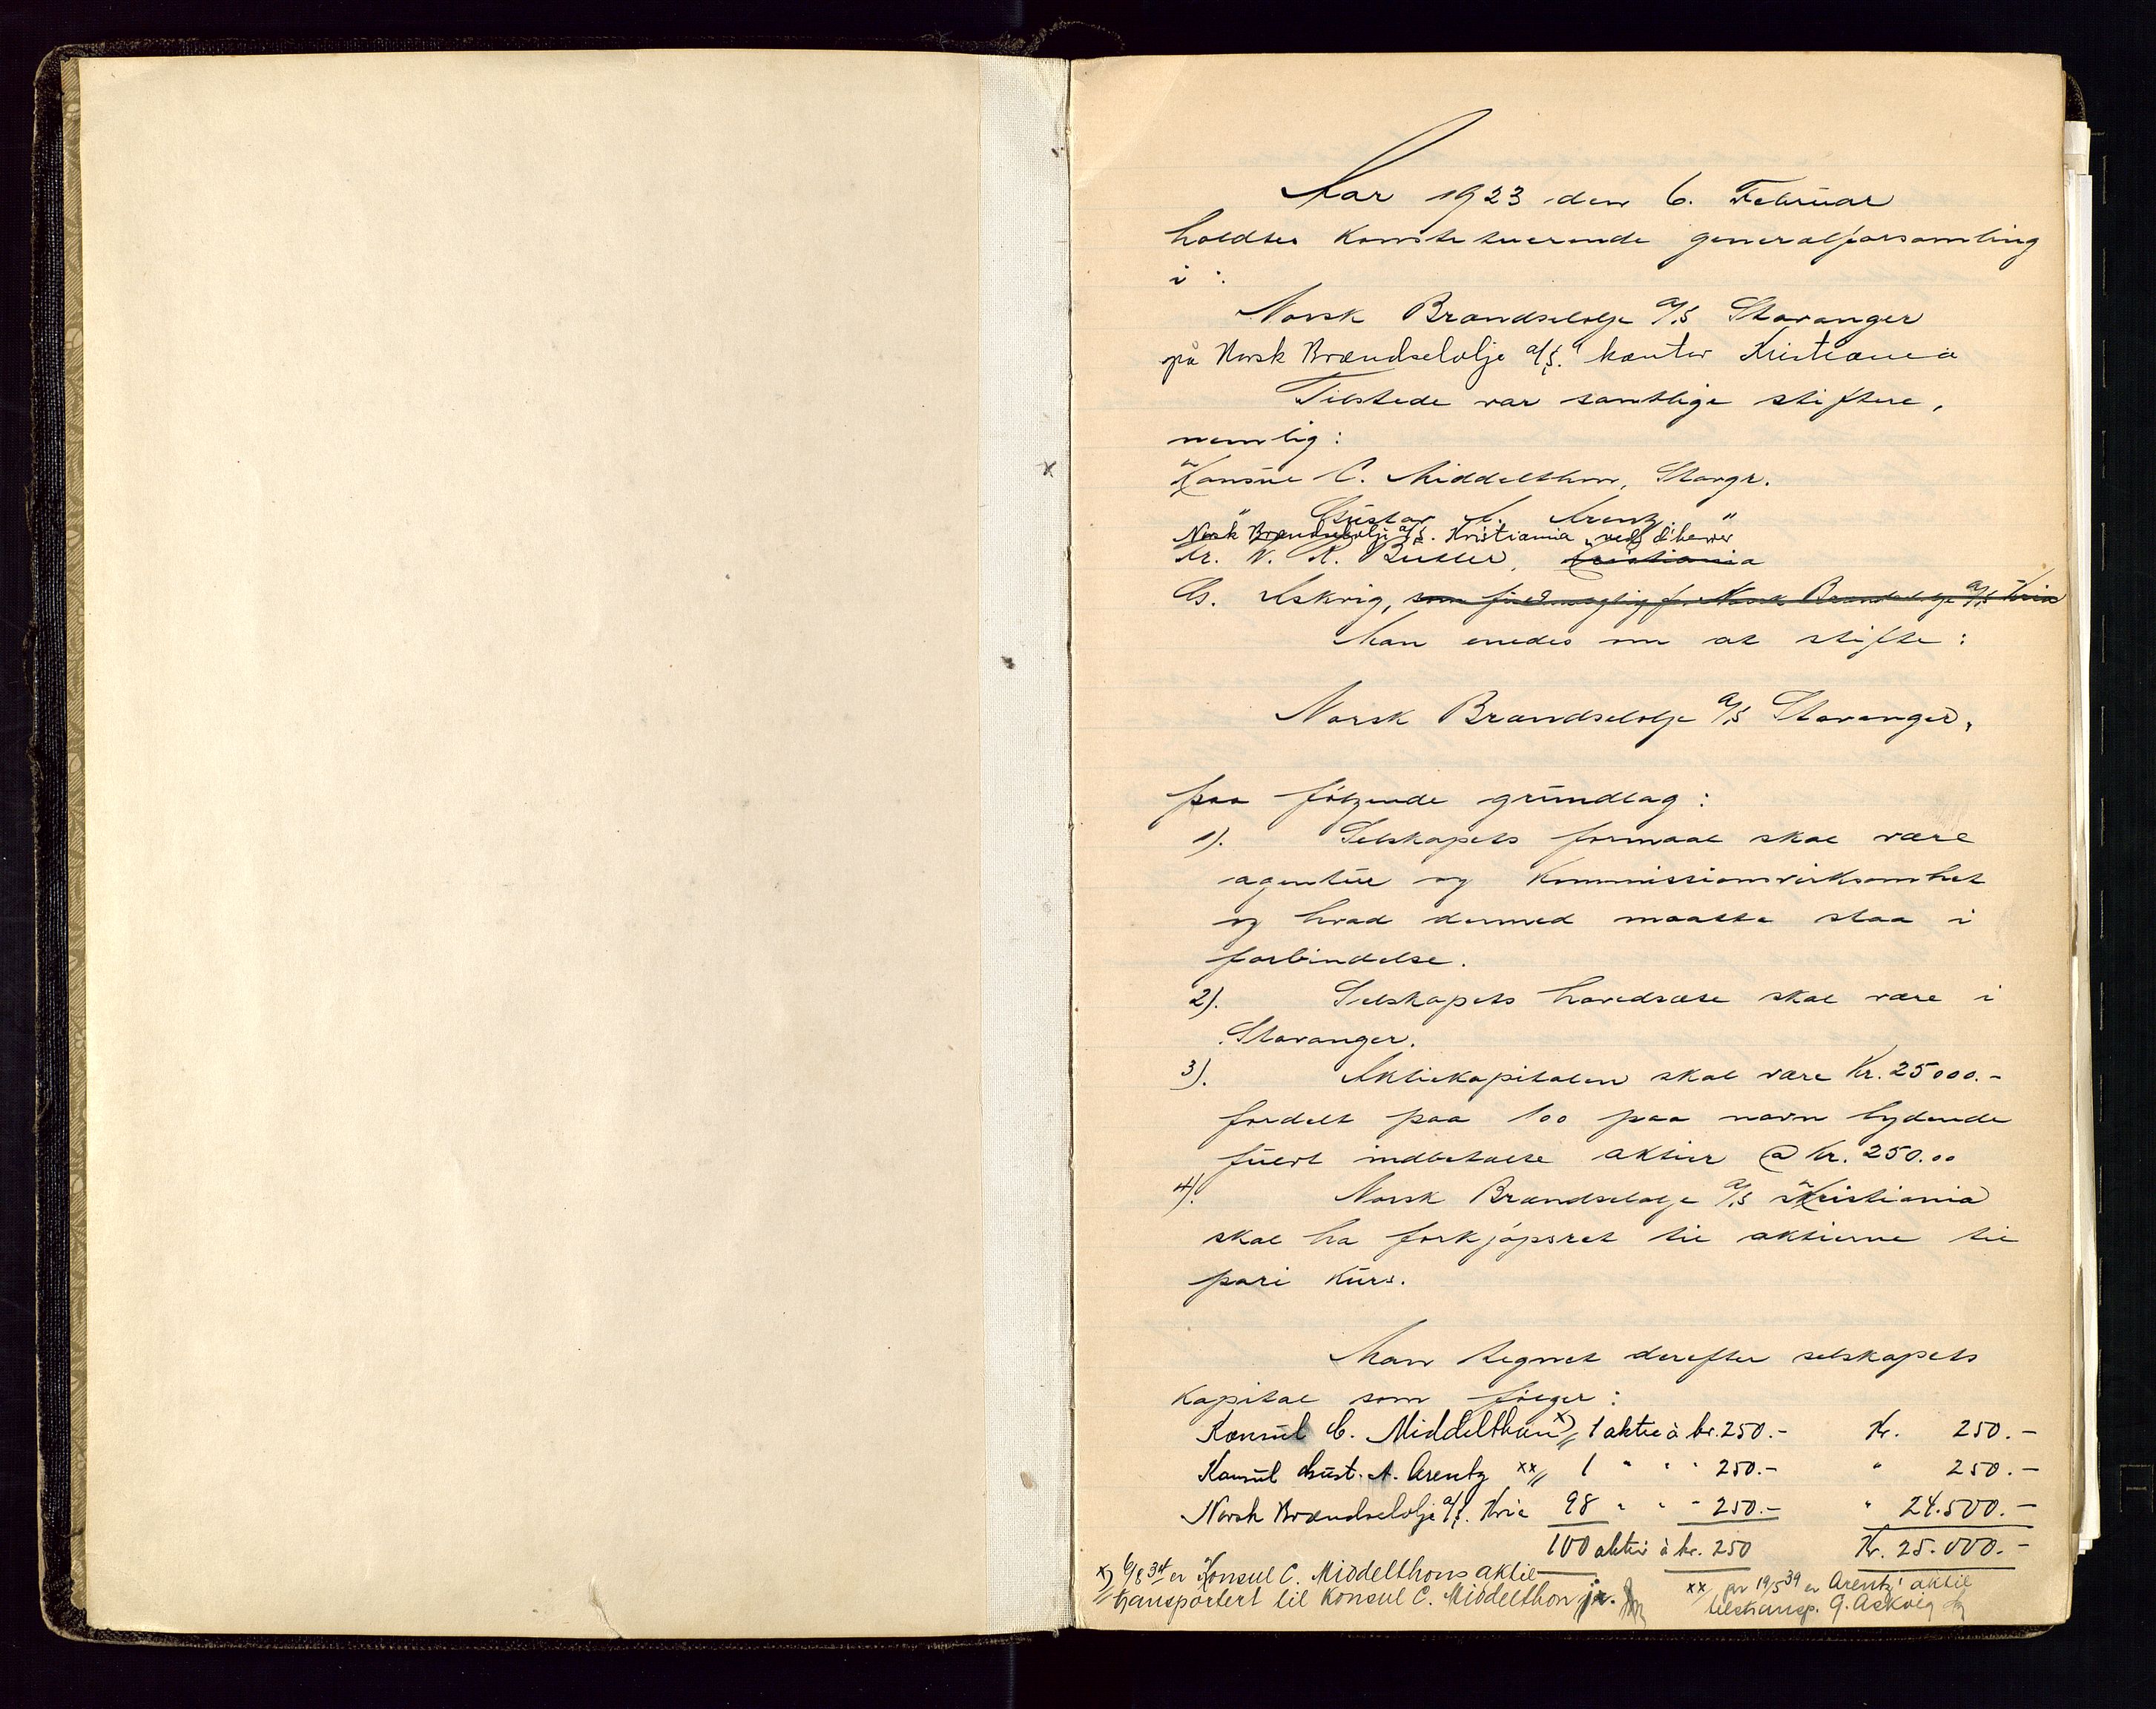 Aar 1923 den 6. Februar
holdtes konstituerende generalforsamling
i :
Norsk Brændselolje a/s Stavanger
på Norsk Brændselolje a/s. kontor Kristiania
Tilstede var samtlige stiftere,
nemlig :
Konsul C. Middelthon, Stavgr.
" Gustav A. Arentz "
Norsk Brændselolje a/s. Kristiania ved d'herrer
Kr. N. R. Butler, Kristiania
G. Askvig, som fuldmægtig for Norsk Brændselolje a/s Kria
Man enedes om at stifte :
Norsk Brændselolje a/s Stavanger,
paa følgende grundlag :
1). Selskapets formaal skal være
agentur og kommissionsvirksomhet
og hvad dermed maatte staa i
forbindelse.
2). Selskapets hovedsæte skal være i
Stavanger.
3). Aktiekapitalen skal være Kr. 25000.-
fordelt paa 100 paa navn lydende
fuldt indbetalte aktier @ Kr. 250.00
4). Norsk Brændselolje a/s Kristiania
skal ha forkjøpsret til aktierne til
pari kurs.
Man tegnet derefter selskapets
kapital som følger :
Konsul C. Middelthon x) 1 aktie à kr. 250.- Kr. 250.-
Konsul Gust. A. Arentz xx) 1 " " " 250.- " 250.-
Norsk Brændselolje a/s. Kria 98 " " " 250.- " 24.500.-
100 aktier à kr. 250 Kr. 25.000.-
x) 6/8 34 er Konsul C. Middelthons aktie
transportert til Konsul C. Middelthon jr.
xx) pr 19/5 39 er Arentz' aktie
tiltransp. G. Askvig